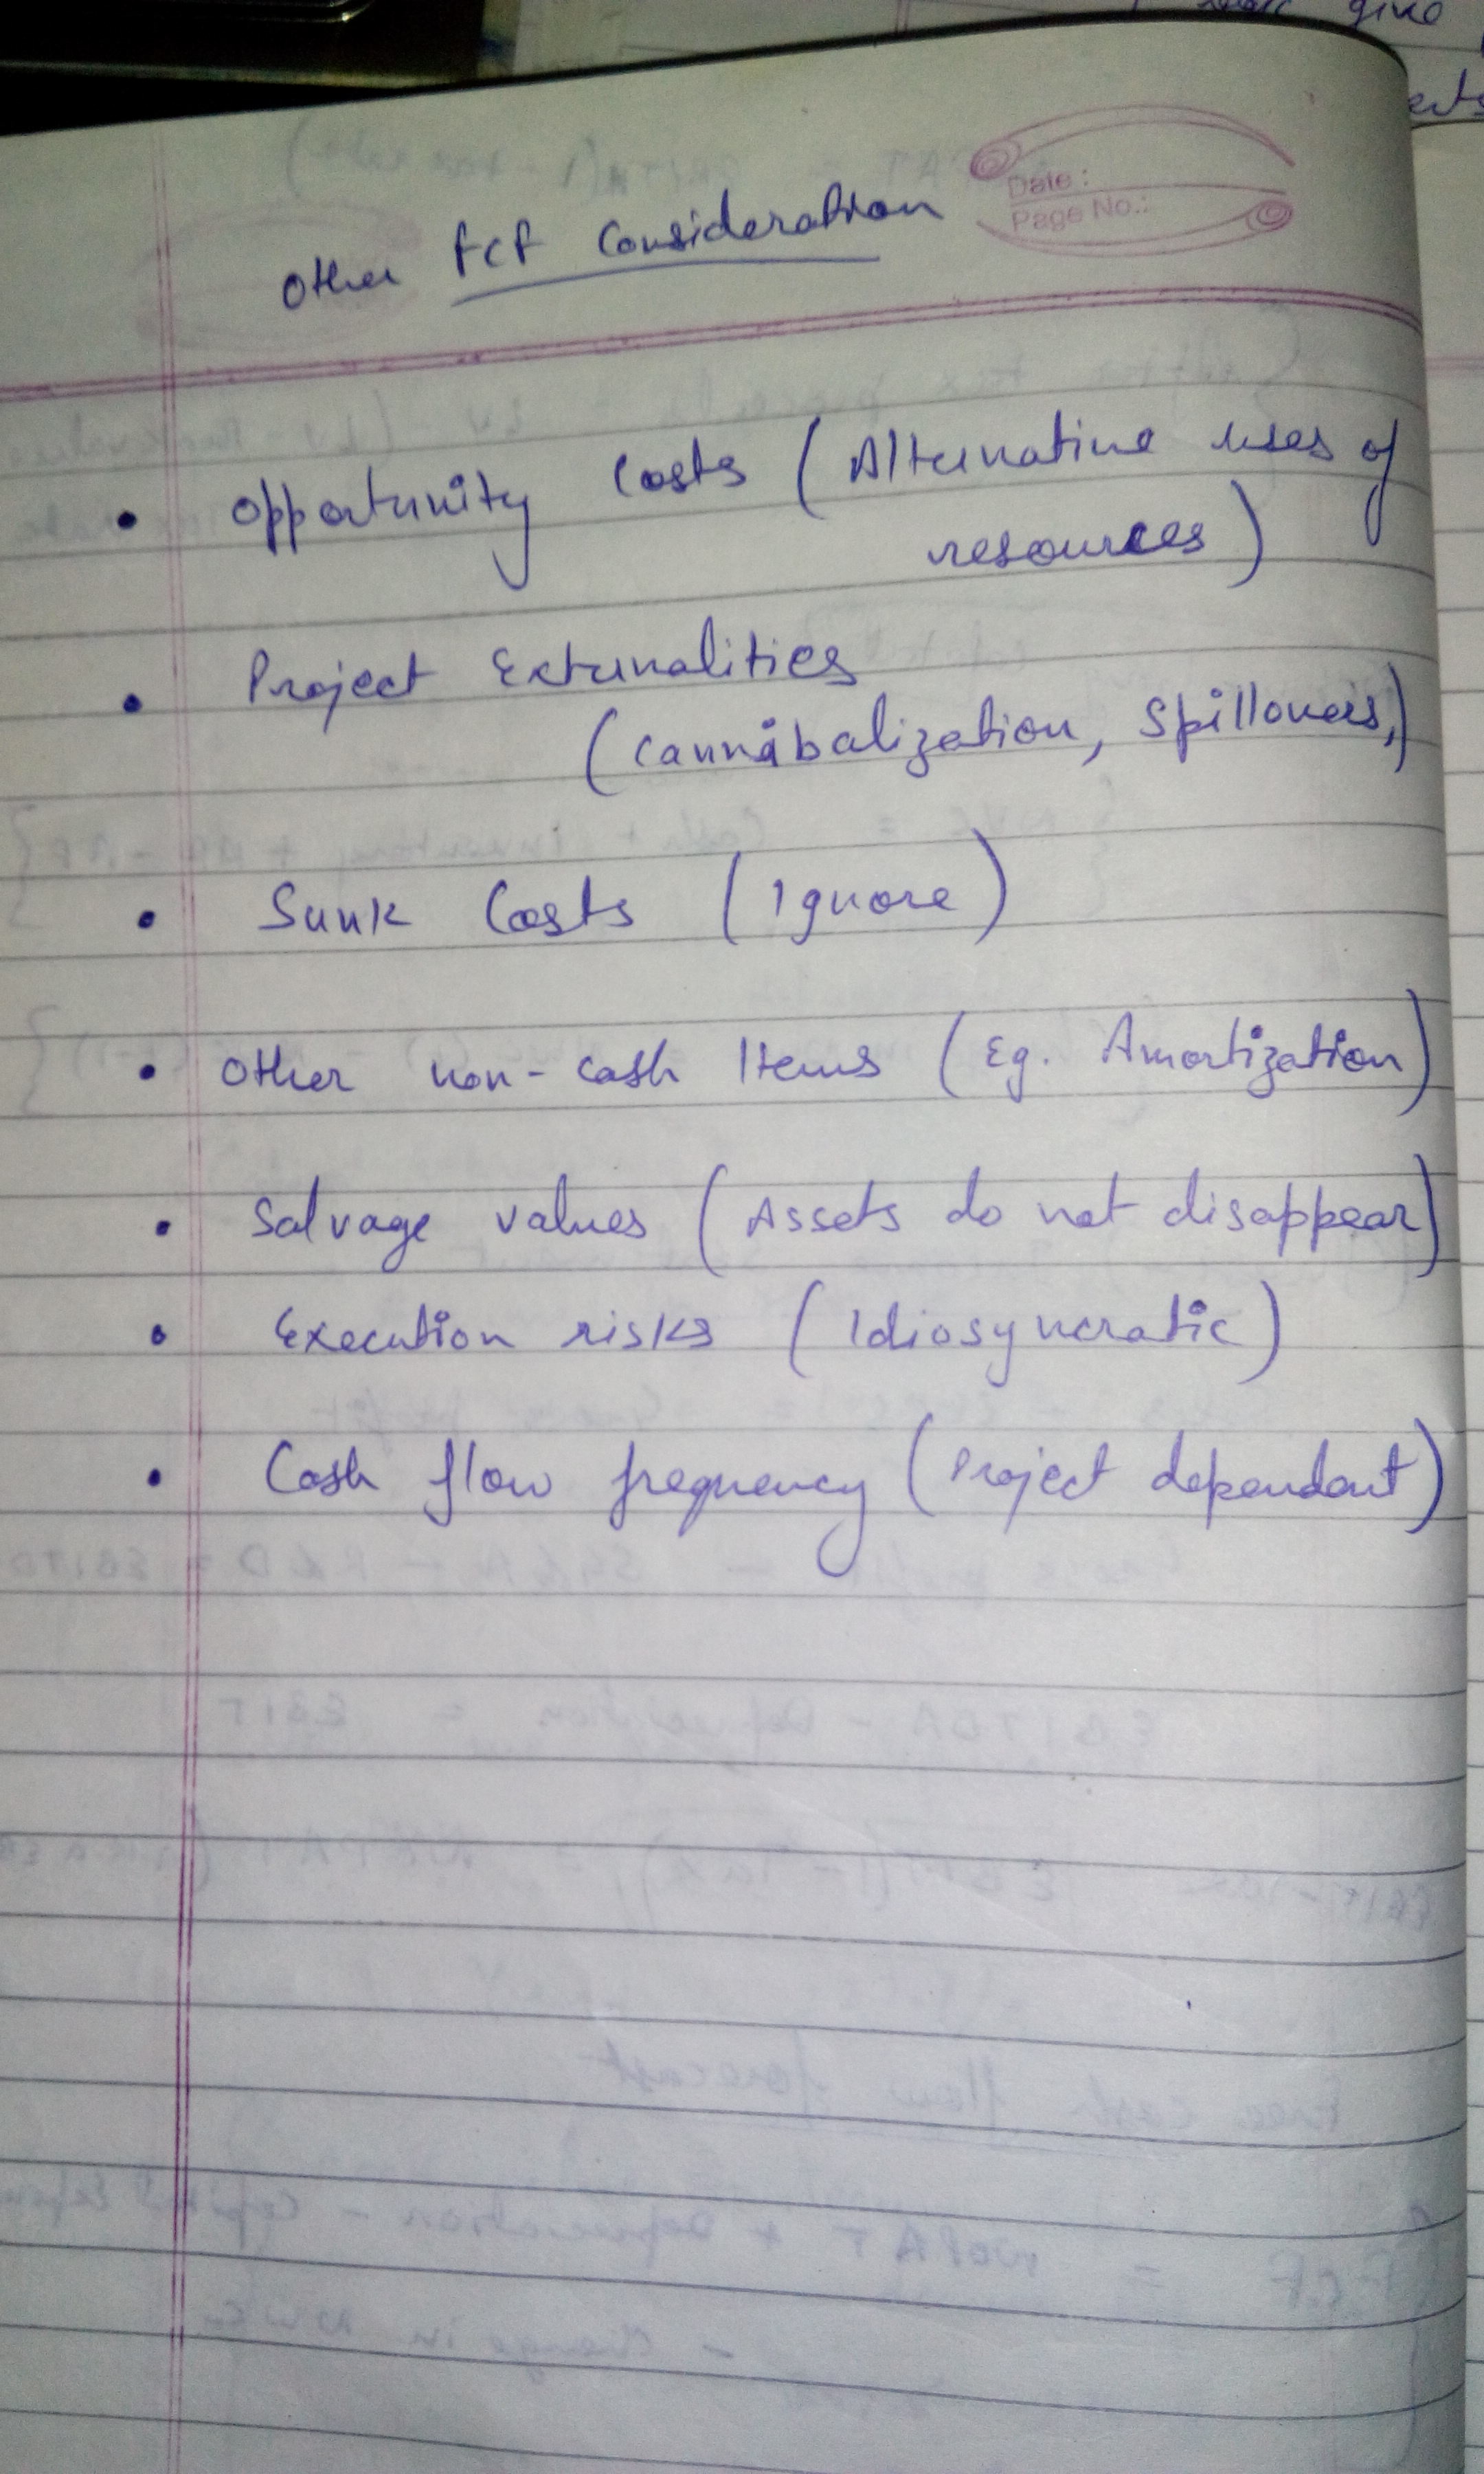 give
Date :
Page No.:
Other FCF Consideration
• Opportunity Costs (Alternative uses of
resources)
• Project Externalities
(Cannibalization, Spillovers,)
• Sunk Costs (Ignore)
• Other non-cash Items (Eg. Amortization)
• Salvage values (Assets do not disappear)
• Execution risks (Idiosyncratic)
• Cash flow frequency (Project dependant)